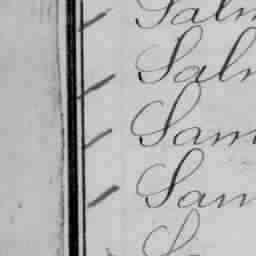 Salm
Salm
Sam
Sam